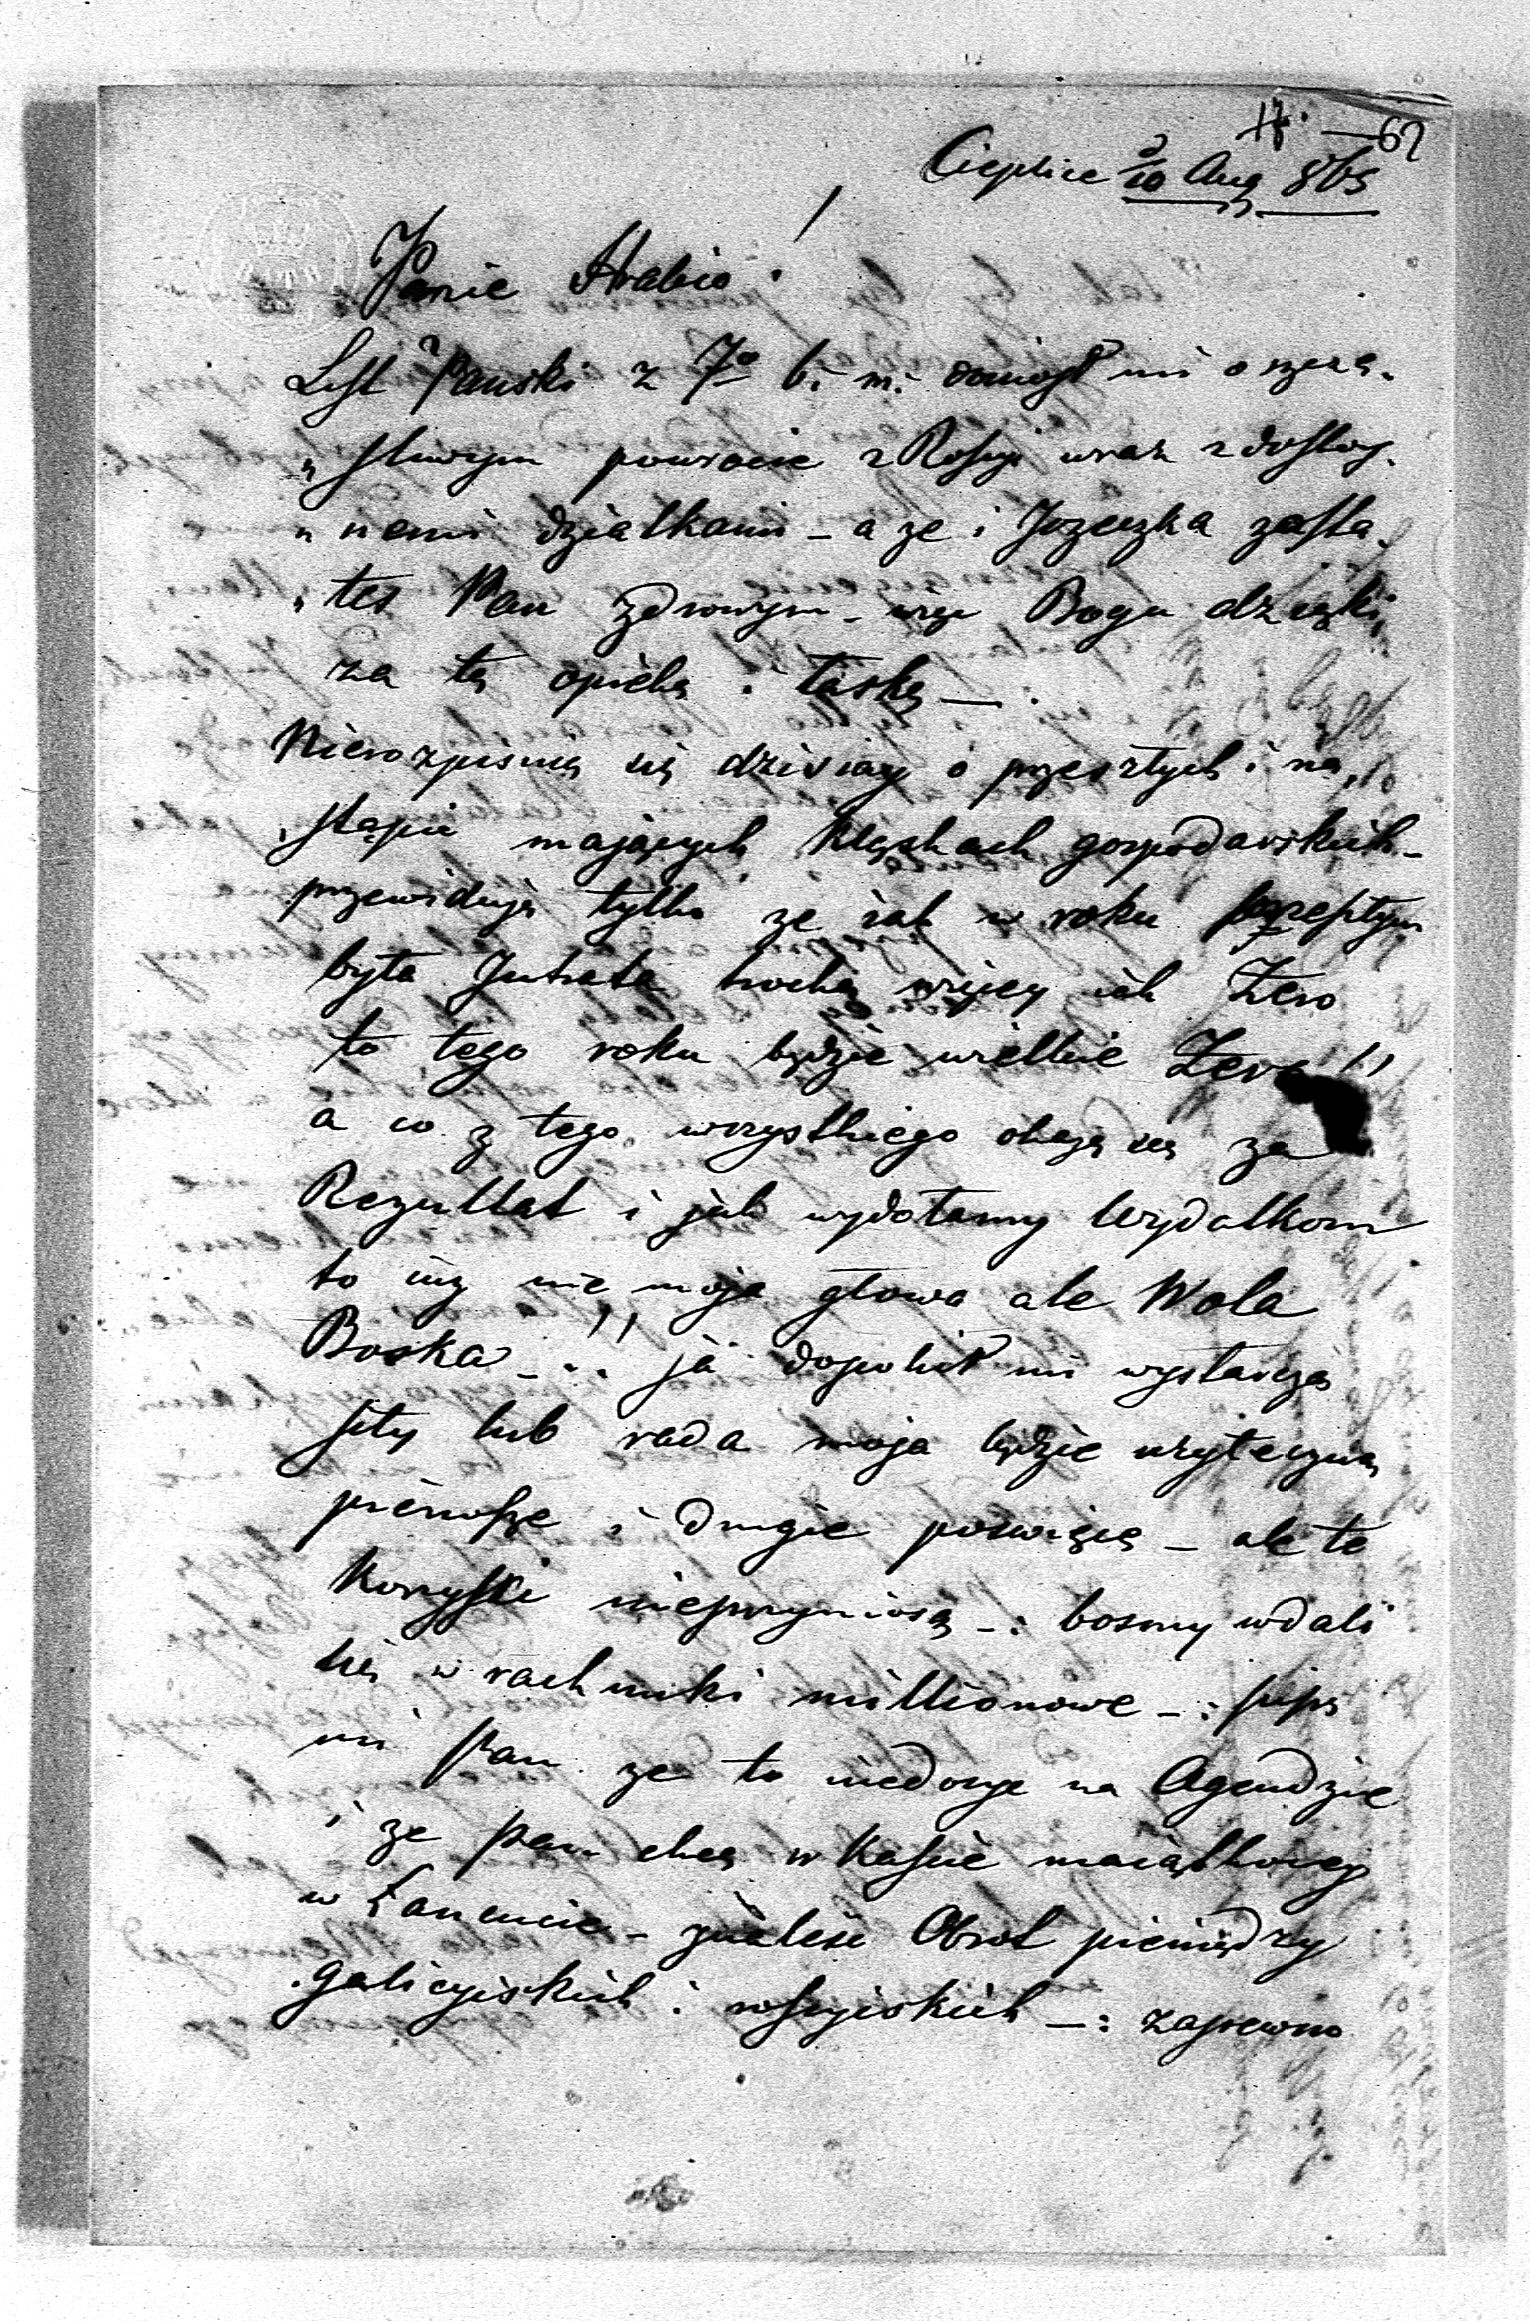 17. — 62
Cieplice 10 Aug 865
Panie Hrabio!
List Pański z 7o b. m. doniosł mi o szczę-
„śliwym powrocie z Rosyi wraz z dostoy-
„nemi dziatkami – a że i Jozeczka zasta-
„łeś Pan zdrowym – więc Bogu dzięki
za tą opiekę i łaskę —.
Nierozpisuię się dzisiay o przeszłych i na-
„stąpić maiących klęskach gospodarskich –
przewiduię tylko że iak w roku przeszłym
była Intrata trochę więcey iak Zero
to tego roku będzie wielkie Zero!!
a co z tego wszystkiego okaże się za
Rezultat i jak wydołamy Wydatkom
to iuż nie moja głowa ale Wola
Boska – !! ja dopokił mi wystarczą
siły lub rada moja będzie użyteczną
pierwsze i drugie poswięcę – ale te
Korzyści nieprzyniosą –: bosmy wdali
się w rachunki millionowe –: pisze
mi Pan że to niedosyć na Agendzie
i że Pan chcą w Kassie maiątkowey
w Łancucie – znaleść Obrot pieniędzy
galicyiskich i rossyiskich –: zapewno